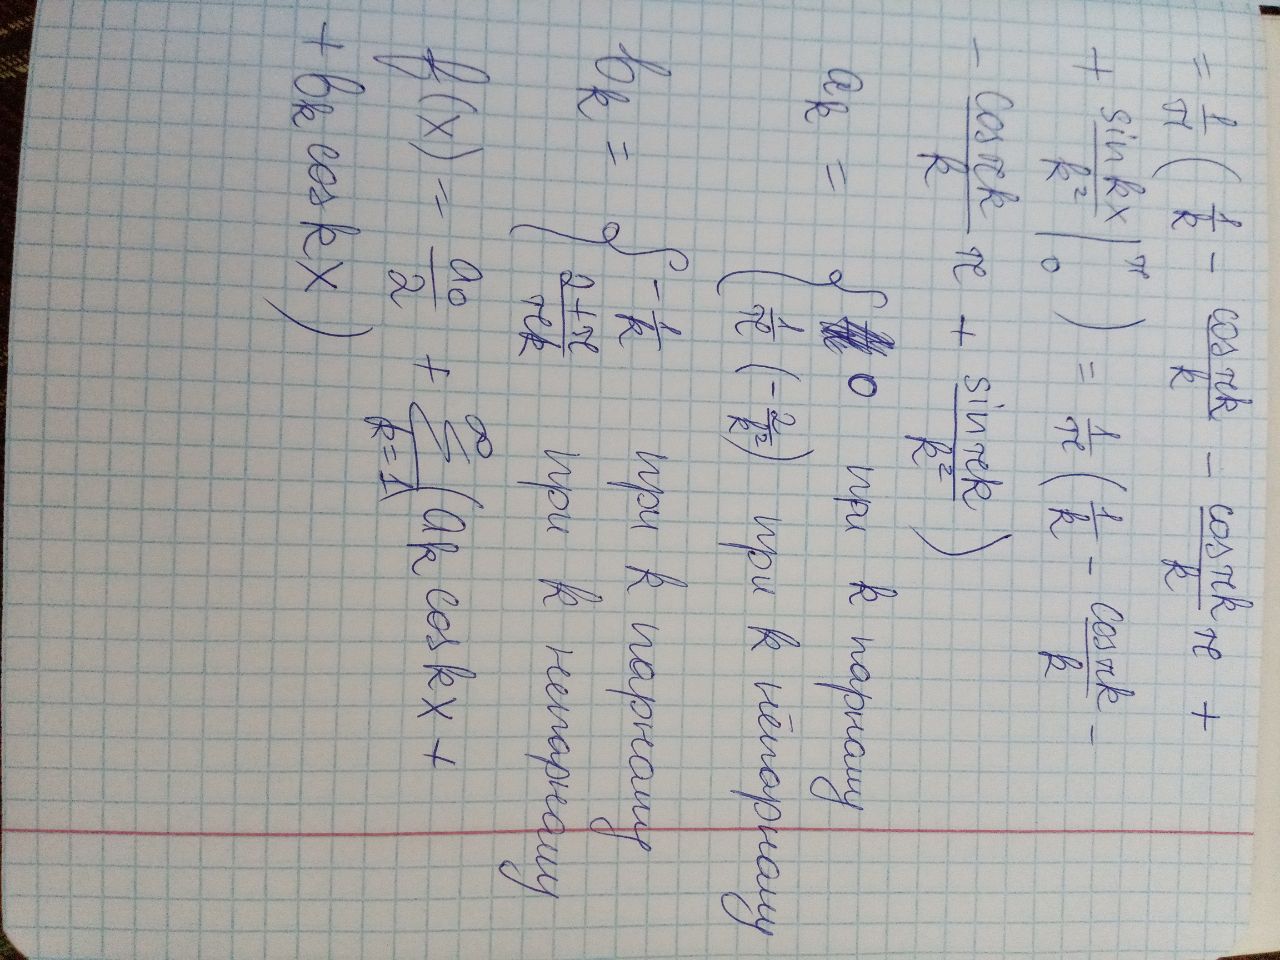 = 1/π ( 1/k - cosπk/k - cosπk/k π +
+ sinkx/k² |₀^π ) = 1/π ( 1/k - cosπk/k -
- cosπk/k π + sinπk/k² )
aₖ = { 0 при k парному
1/π (-2/k²) при k непарному
bₖ = { -1/k при k парному
2+π/πk при k непарному
f(x) = a₀/2 + ∑_{k=1}^{∞} (aₖ coskx +
+ bₖ coskx )